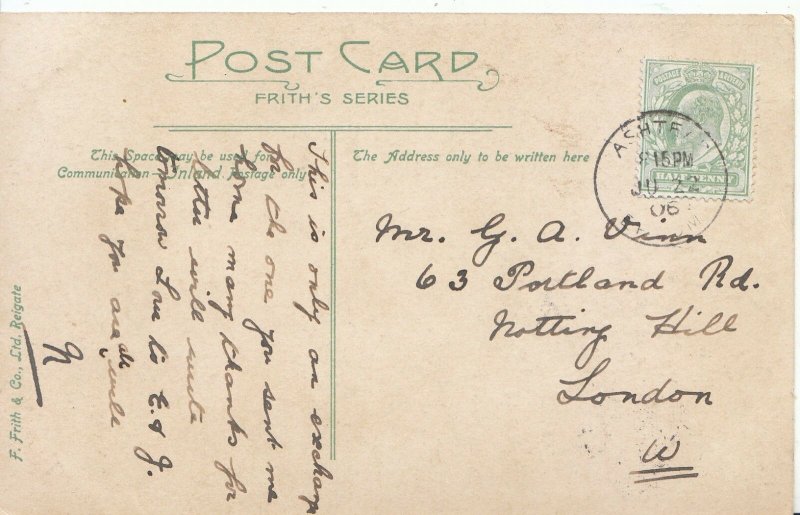 POST CARD
FRITH'S SERIES
This Space may be used for
Communication—Inland Postage only
The Address only to be written here
POSTAGE REVENUE
HALF PENNY
ASHTE
8 15 PM
JU 22
06
Mr. G. A. Vinn
63 Portland Rd.
Notting Hill
London
W
This is only an exchange
for the one you sent me
many thanks for
letter will write
tomorrow Love to E & J.
hope you are all well
N
F. Frith & Co., Ltd. Reigate